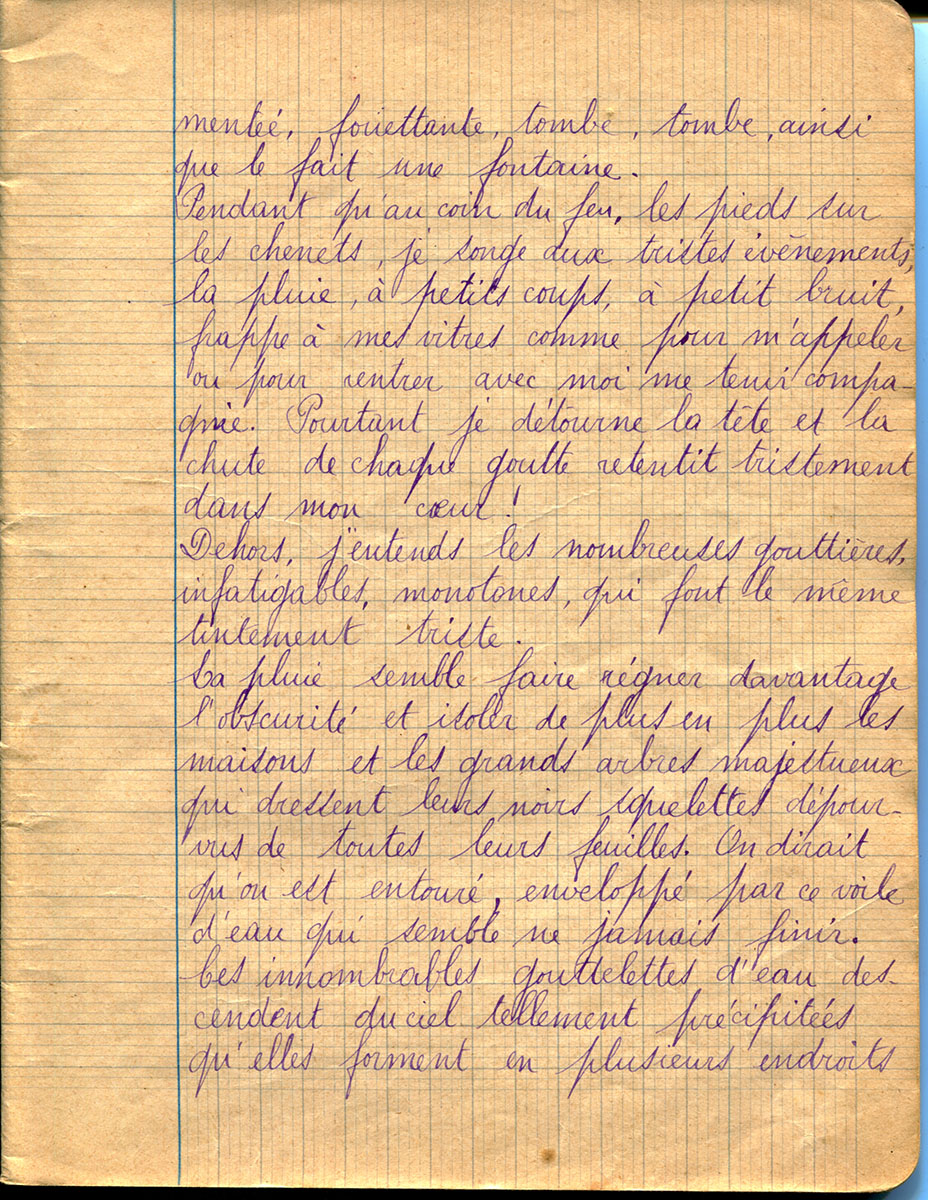 mentée, fouettante, tombe, tombe, ainsi
que le fait une fontaine.
Pendant qu'au coin du feu, les pieds sur
les chenets, je songe aux tristes évènements,
la pluie, à petits coups, à petit bruit,
frappe à mes vitres comme pour m'appeler
ou pour rentrer avec moi me tenir compa-
gnie. Pourtant je détourne la tête et la
chute de chaque goutte retentit tristement
dans mon cœur!
Dehors, j'entends les nombreuses gouttières,
infatigables, monotones, qui font le même
tintement triste.
La pluie semble faire régner davantage
l'obscurité et isoler de plus en plus les
maisons et les grands arbres majestueux
qui dressent leurs noirs squelettes dépour-
vus de toutes leurs feuilles. On dirait
qu'on est entouré, enveloppé par ce voile
d'eau qui semble ne jamais finir.
Ces innombrables gouttelettes d'eau des-
cendent du ciel tellement précipitées
qu'elles forment en plusieurs endroits